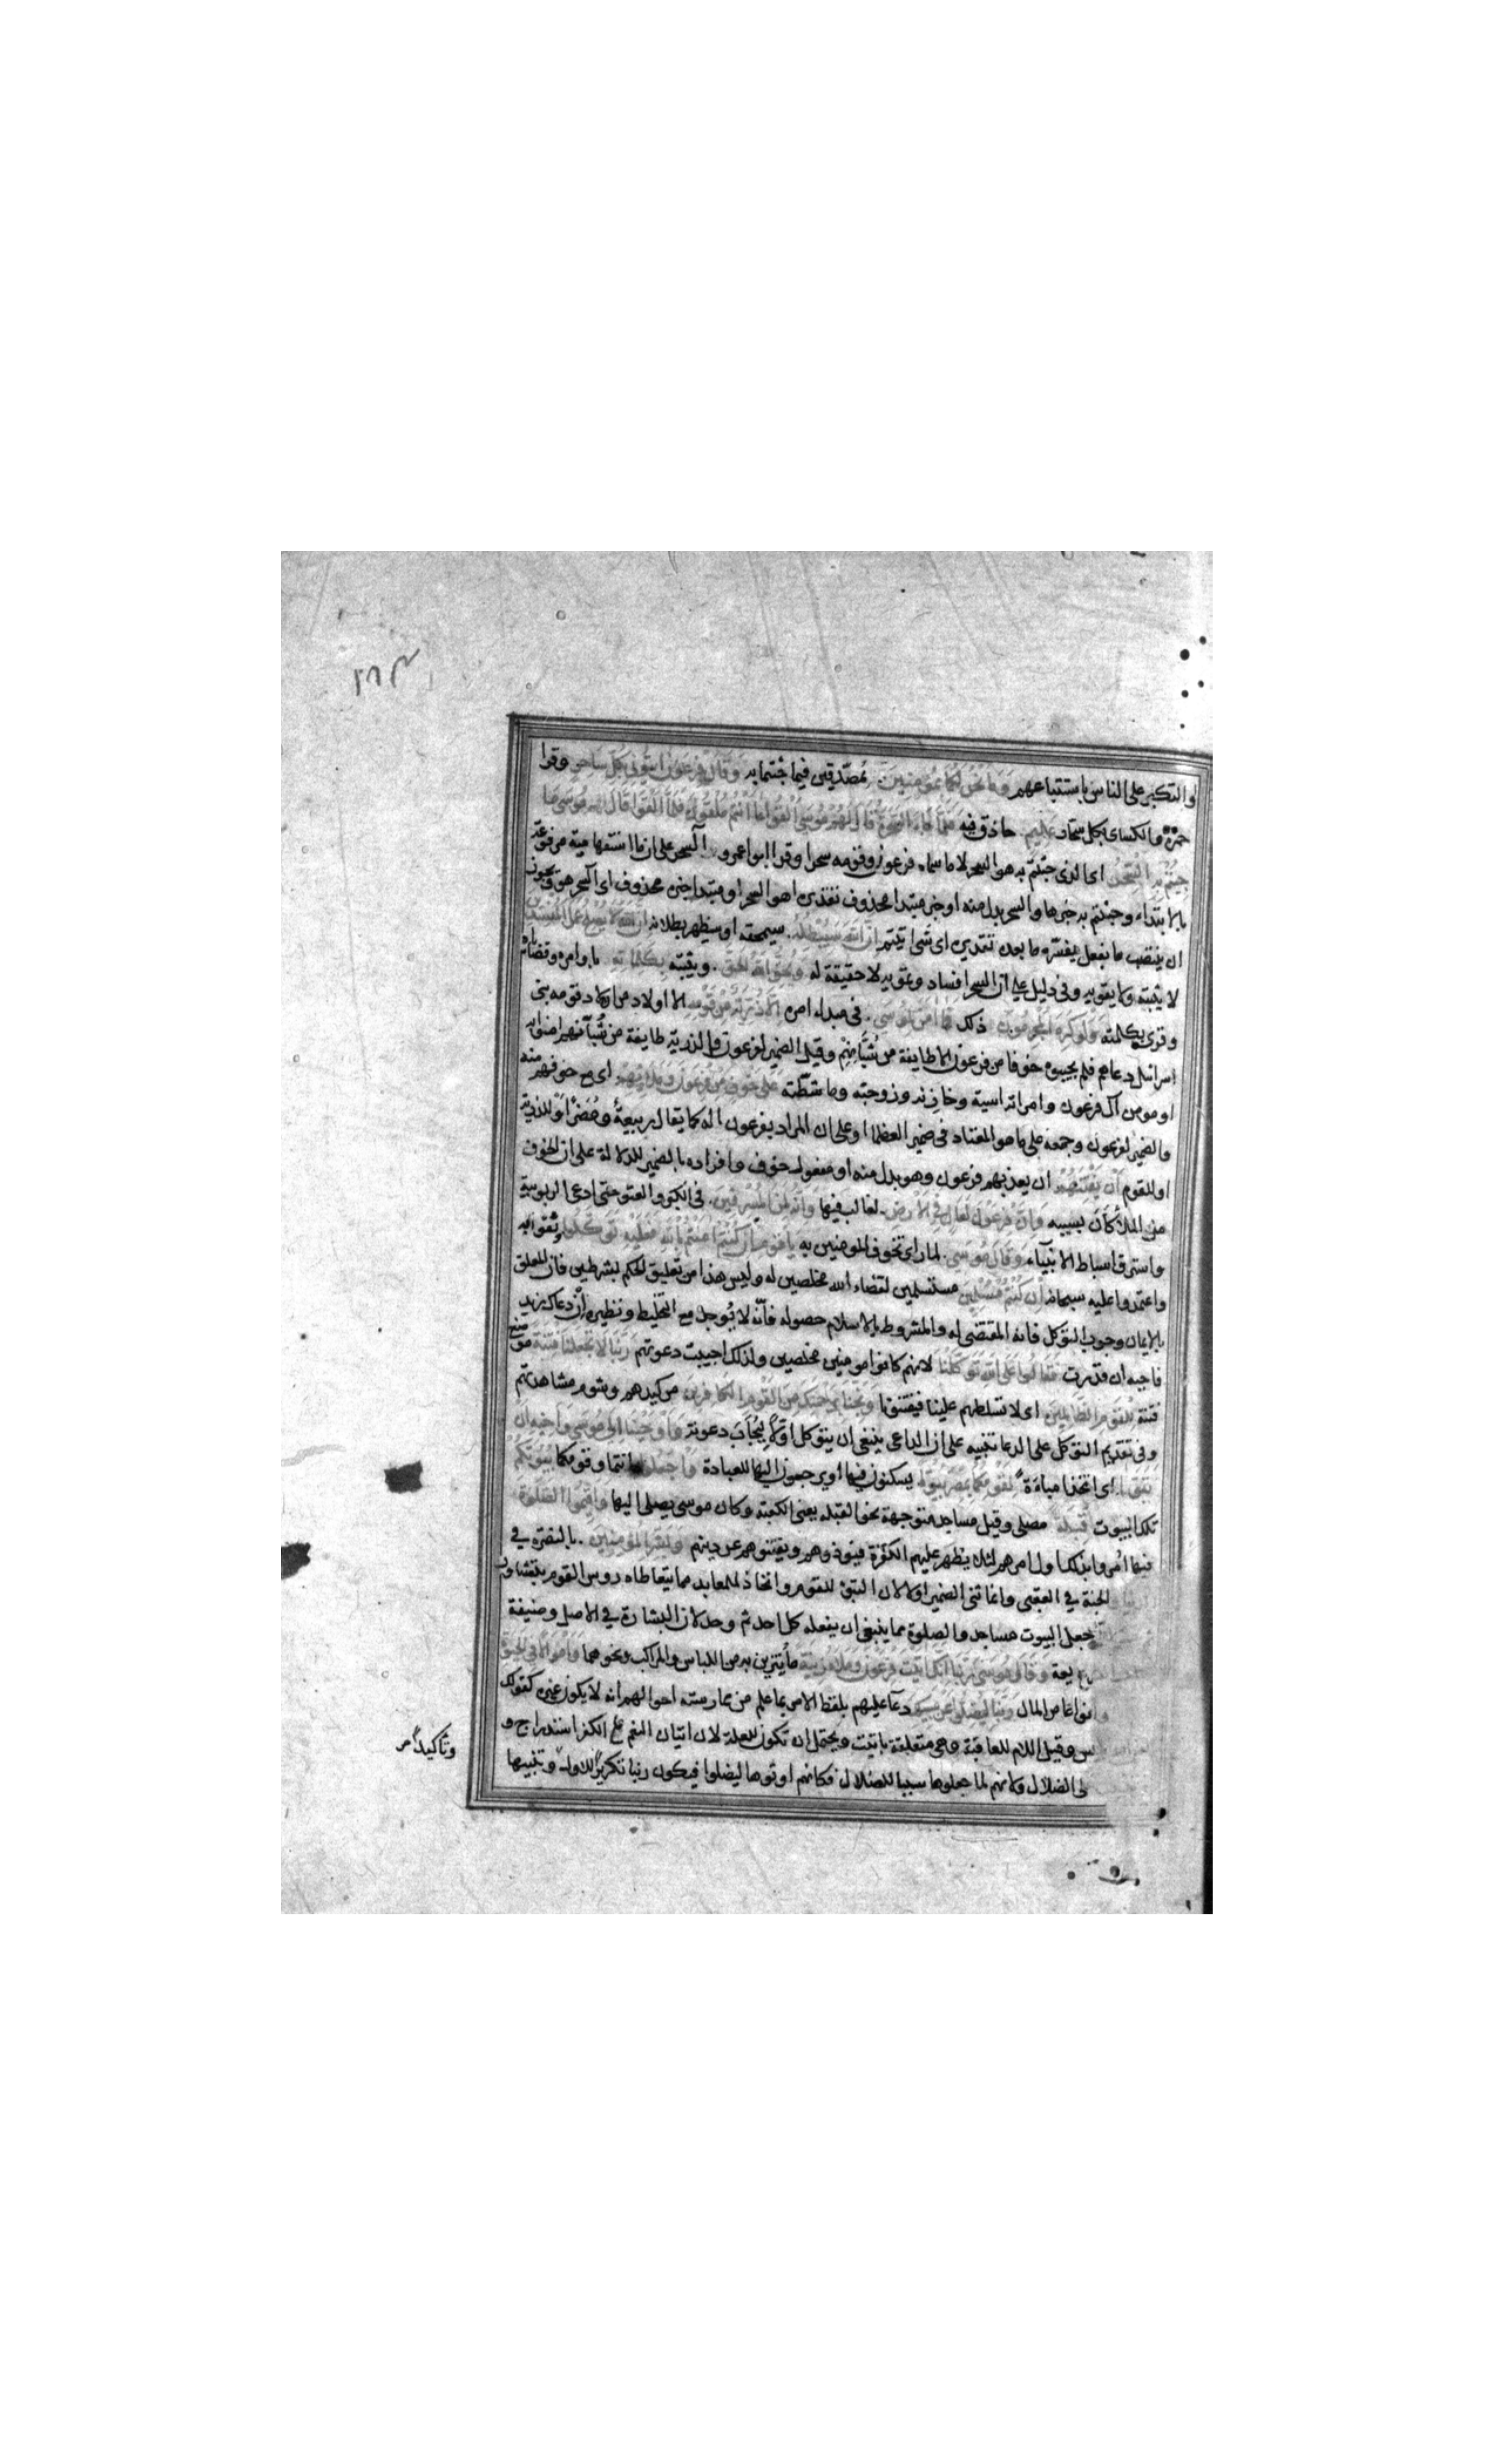 ٢٨٣
والتكبر على الناس باستتباعهم وما نحن لكما بمؤمنين بمصدقين فيما جئتما به وقال فرعون ائتوني بكل ساحر وقرا
حمزة والكسائي بكل سحار عليم حاذق فيه فلما جاء السحرة قال لهم موسى القوا ما انتم ملقون فلما القوا قال موسى ما
جئتم به السحر اي الذي جئتم به هو السحر لا ما سماه فرعون وقومه سحرا وقرا ابو عمرو السحر على ان ما استفهامية مرفوعة
بالابتداء وجئتم به خبرها والسحر بدل منه او خبر مبتدا محذوف تقديره اهو السحر او مبتدا خبره محذوف اي السحر هو ويجوز
ان ينتصب ما بفعل يفسره ما بعده تقديره اي شي اتيتم ان الله سيبطله سيمحقه او سيظهر بطلانه ان الله لا يصلح عمل المفسدين
لا يثبته ولا يقويه وفيه دليل على ان السحر افساد وتمويه لا حقيقة له ويحق الله الحق ويثبته بكلماته باوامره وقضاياه
وقرئ بكلمته ولو كره المجرمون ذلك فما امن لموسى في مبداء امره الا ذرية من قومه الا اولاد من اولاد قومه بني
اسرائيل دعاهم فلم يجيبوه خوفا من فرعون الا طايفة من شبانهم وقيل الضمير لفرعون والذرية طايفة من شبانهم امنوا به
او مومن آل فرعون وامراته اسية وخازنه وزوجته وماشطته على خوف من فرعون وملائهم اي مع خوف منه
والضمير لفرعون وجمعه على ما هو المعتاد في ضمير العظما او على ان المراد بفرعون اله كما يقال ربيعة ومضر او للذرية
او للقوم ان يفتنهم ان يعذبهم فرعون وهو بدل منه او مفعول خوف وافراده بالضمير للدلالة على ان الخوف
من الملأ كان بسببه وان فرعون لعال في الارض لغالب فيها وانه لمن المسرفين في الكبر والعتو حتى ادعى الربوبية
واسترق اسباط الانبياء وقال موسى لما راى تخوف المومنين به يا قوم ان كنتم امنتم بالله فعليه توكلوا فثقوا به
واعتمدوا عليه سبحانه ان كنتم مسلمين مستسلمين لقضاء الله مخلصين له وليس هذا من تعليق الحكم بشرطين فان المعلق
بالايمان وجوب التوكل فانه المقتضي له والمشروط بالاسلام حصوله فانه لا يوجد مع التخليط ونظيره ان دعاك زيد
فاجبه ان قدرت فقالوا على الله توكلنا لانهم كانوا مومنين مخلصين ولذلك اجيبت دعوتهم ربنا لا تجعلنا فتنة موضع
فتنة للقوم الظالمين اي لا تسلطهم علينا فيفتنونا ونجنا برحمتك من القوم الكافرين من كيدهم وشوم مشاهدتهم
وفي تقديم التوكل على الدعا تنبيه على ان الداعي ينبغي ان يتوكل اولا ليجاب دعوته واوحينا الى موسى واخيه ان
تبوا اي اتخذا مباءة لقومكما بمصر بيوتا يسكنون فيها او يرجعون اليها للعبادة واجعلوا انتما وقومكما بيوتكم
تلك البيوت قبلة مصلى وقيل مساجد متوجهة نحو القبلة يعني الكعبة وكان موسى يصلي اليها واقيموا الصلوة
فيها امروا بذلك اول امرهم لئلا يظهر عليهم الكفرة فيوذوهم ويفتنوهم عن دينهم وبشر المومنين بالنصرة في
والجنة في العقبى وانما ثنى الضمير اولا لان التبوا للقوم واتخاذ المعابد مما يتعاطاه روس القوم بتشاور
جعل البيوت مساجد والصلوة مما ينبغي ان يفعله كل احد ثم وحد لان البشارة في الاصل وضيفة
وقال موسى ربنا انك اتيت فرعون وملاه زينة ما يتزين به من اللباس والمراكب ونحوهما واموالا في الحيوة
وانواعا من المال ربنا ليضلوا عن سبيلك دعا عليهم بلفظ الامر بما علم من ممارسة احوالهم انه لا يكون غيره كقولك
وقيل اللام للعاقبة وهي متعلقة باتيت ويحتمل ان تكون للعلة لان اتيان النعم على الكفر استدراج و
الضلال ولانهم لما جعلوها سببا للضلال فكانهم اوتوها ليضلوا فيكون ربنا تكريرا للاول وتنبيها
وتاكيدا